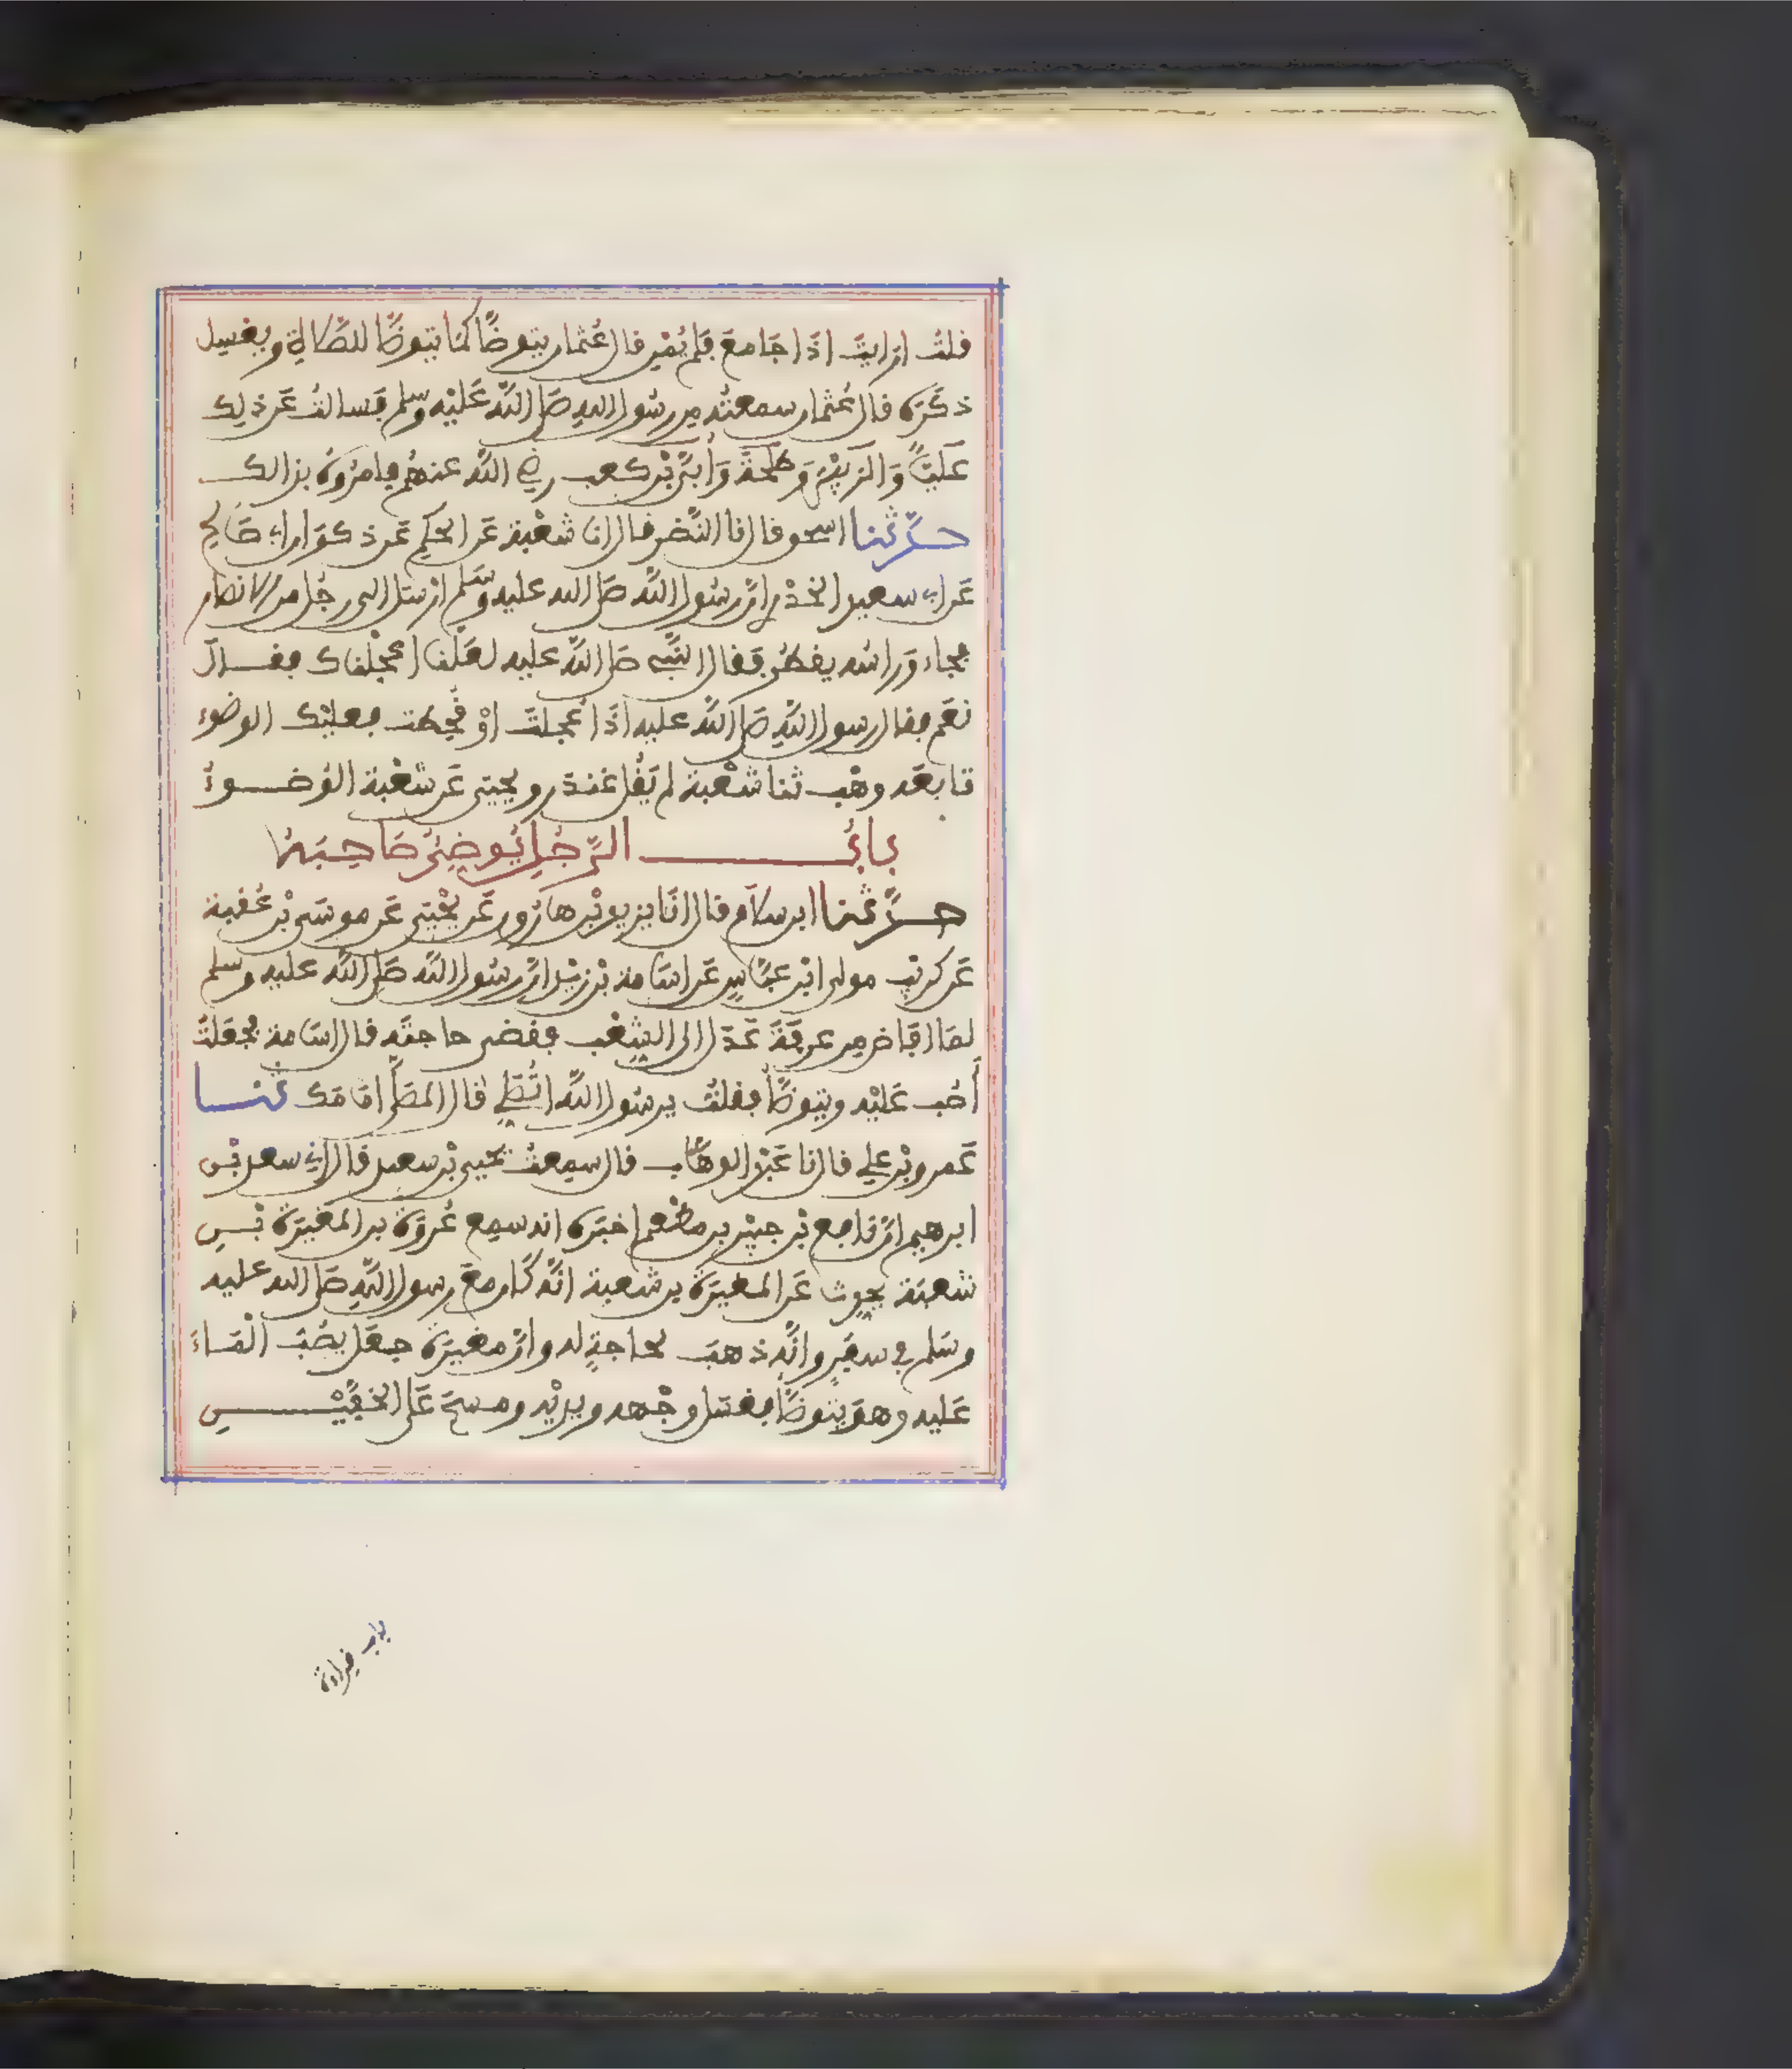 قلت ارايت اذا جامع فلم يمن قال عثمان يتوضأ كما يتوضأ للصلاة ويغسل
ذكره قال عثمان سمعته من رسول الله صلى الله عليه وسلم فسالت عن ذلك
عليًّا والزبير وطلحة وأبيّ بن كعب رضي الله عنهم فامروه بذالك
حدثنا اسحق قال انا النضر قال انا شعبة عن الحكم عن ذكوان ابي صالح
عن ابي سعيد الخدري ان رسول الله صلى الله عليه وسلم ارسل الى رجل من الانصار
فجاء وراسه يقطر فقال النبي صلى الله عليه لعلنا اعجلناك فقال
نعم فقال رسول الله صلى الله عليه اذا أعجلت او قحطت فعليك الوضوء
تابعه وهب ثنا شعبة لم يقل غندر ويحيى عن شعبة الوضوء
باب الرجل يوضئ صاحبه
حدثنا ابن سلام قال انا يزيد بن هارون عن يحيى عن موسى بن عقبة
عن كريب مولى ابن عباس عن اسامة بن زيد ان رسول الله صلى الله عليه وسلم
لما افاض من عرفة عدل الى الشعب فقضى حاجته قال اسامة فجعلت
أصب عليه ويتوضأ فقلت يرسول الله اتصلي قال المصلى امامك ثنا
عمرو بن علي قال نا عبد الوهاب قال سمعت يحيى بن سعيد قال اني سعد بن
ابرهيم ان نافع بن جبير بن مطعم اخبره انه سمع عروة بن المغيرة بن
شعبة يحدث عن المغيرة بن شعبة انه كان مع رسول الله صلى الله عليه
وسلم في سفر وانه ذهب لحاجة له وان مغيرة جعل يصب الماء
عليه وهو يتوضأ فغسل وجهه ويديه ومسح على الخفين
باب قراءة